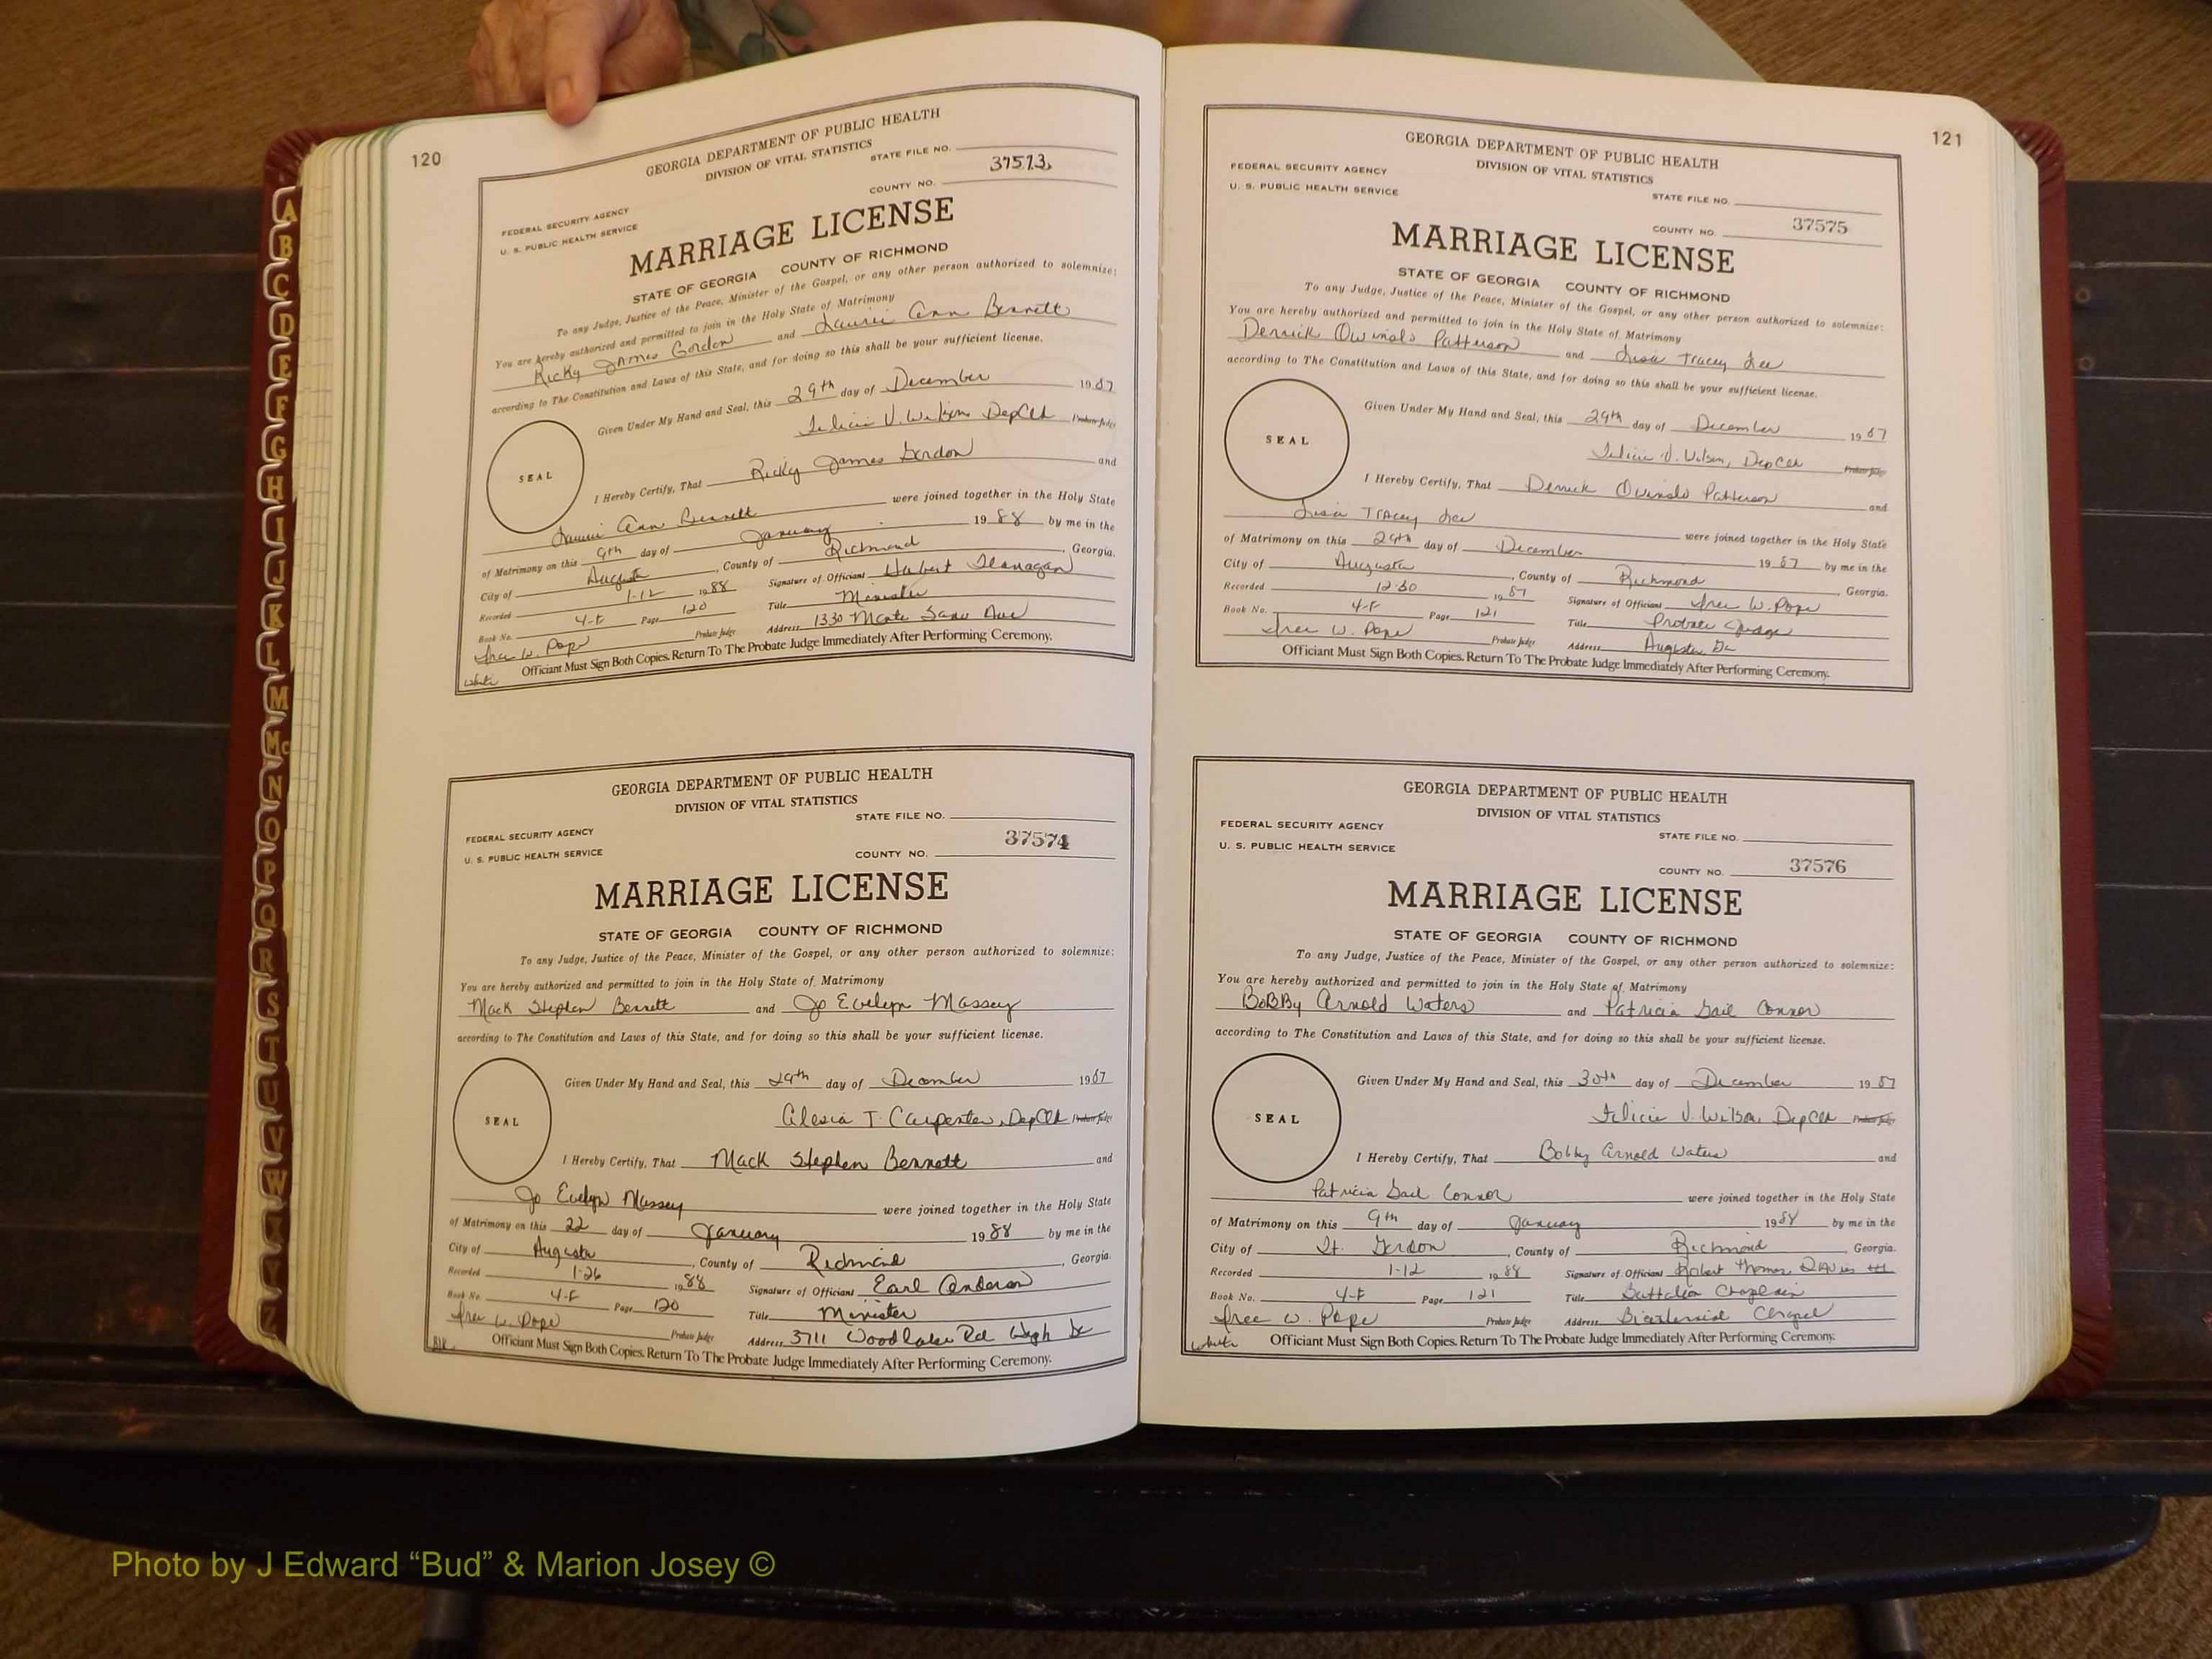 120
GEORGIA DEPARTMENT OF PUBLIC HEALTH
DIVISION OF VITAL STATISTICS
STATE FILE NO.
37573
COUNTY NO.
FEDERAL SECURITY AGENCY
U. S. PUBLIC HEALTH SERVICE
MARRIAGE LICENSE
STATE OF GEORGIA COUNTY OF RICHMOND
To any Judge, Justice of the Peace, Minister of the Gospel, or any other person authorized to solemnize:
You are hereby authorized and permitted to join in the Holy State of Matrimony
Ricky James Gordon and Laurie Ann Bennett
according to The Constitution and Laws of this State, and for doing so this shall be your sufficient license.
Given Under My Hand and Seal, this 29th day of December 1987
Felicia V. Wilson DepClk Probate Judge
SEAL
I Hereby Certify, That Ricky James Gordon and
Laurie Ann Bennett were joined together in the Holy State
of Matrimony on this 9th day of January 1988 by me in the
City of Augusta, County of Richmond, Georgia.
Recorded 1-12 1988 Signature of Officiant Flanagan
Book No. 4-F Page 120 Title Minister
Probate Judge Address 1330 Monte Sano Ave
W. Pope
Officiant Must Sign Both Copies. Return To The Probate Judge Immediately After Performing Ceremony.
White
GEORGIA DEPARTMENT OF PUBLIC HEALTH
DIVISION OF VITAL STATISTICS
STATE FILE NO.
FEDERAL SECURITY AGENCY
37574
U. S. PUBLIC HEALTH SERVICE
COUNTY NO.
MARRIAGE LICENSE
STATE OF GEORGIA COUNTY OF RICHMOND
To any Judge, Justice of the Peace, Minister of the Gospel, or any other person authorized to solemnize:
You are hereby authorized and permitted to join in the Holy State of Matrimony
Mack Stephen Bennett and Jo Evelyn Massey
according to The Constitution and Laws of this State, and for doing so this shall be your sufficient license.
Given Under My Hand and Seal, this 29th day of December 1987
Alesia T. Carpenter, DepClk Probate Judge
SEAL
I Hereby Certify, That Mack Stephen Bennett and
Jo Evelyn Massey were joined together in the Holy State
of Matrimony on this 22 day of January 1988 by me in the
City of Augusta, County of Richmond, Georgia.
Recorded 1-26 1988 Signature of Officiant Earl Anderson
Book No. 4-F Page 120 Title Minister
W. Pope Probate Judge Address 3711 Woodlake Rd
Officiant Must Sign Both Copies. Return To The Probate Judge Immediately After Performing Ceremony.
121
GEORGIA DEPARTMENT OF PUBLIC HEALTH
DIVISION OF VITAL STATISTICS
FEDERAL SECURITY AGENCY
U. S. PUBLIC HEALTH SERVICE
STATE FILE NO.
37575
COUNTY NO.
MARRIAGE LICENSE
STATE OF GEORGIA COUNTY OF RICHMOND
To any Judge, Justice of the Peace, Minister of the Gospel, or any other person authorized to solemnize:
You are hereby authorized and permitted to join in the Holy State of Matrimony
Derrick Patterson and Lisa Tracey Lee
according to The Constitution and Laws of this State, and for doing so this shall be your sufficient license.
Given Under My Hand and Seal, this 29th day of December 1987
Felicia V. Wilson, DepClk Probate Judge
SEAL
I Hereby Certify, That Derrick Patterson and
Lisa Tracey Lee were joined together in the Holy State
of Matrimony on this 29th day of December 1987 by me in the
City of Augusta, County of Richmond, Georgia.
Recorded 12-30 1987 Signature of Officiant W. Pope
Book No. 4-F Page 121 Title Probate Judge
W. Pope Probate Judge Address Augusta Ga
Officiant Must Sign Both Copies. Return To The Probate Judge Immediately After Performing Ceremony.
GEORGIA DEPARTMENT OF PUBLIC HEALTH
DIVISION OF VITAL STATISTICS
FEDERAL SECURITY AGENCY
STATE FILE NO.
U. S. PUBLIC HEALTH SERVICE
37576
COUNTY NO.
MARRIAGE LICENSE
STATE OF GEORGIA COUNTY OF RICHMOND
To any Judge, Justice of the Peace, Minister of the Gospel, or any other person authorized to solemnize:
You are hereby authorized and permitted to join in the Holy State of Matrimony
BoBBy Arnold Waters and Patricia Gail Connor
according to The Constitution and Laws of this State, and for doing so this shall be your sufficient license.
Given Under My Hand and Seal, this 30th day of December 1987
Felicia V. Wilson, DepClk Probate Judge
SEAL
I Hereby Certify, That Bobby Arnold Waters and
Patricia Gail Connor were joined together in the Holy State
of Matrimony on this 9th day of January 1988 by me in the
City of Ft. Gordon, County of Richmond, Georgia.
Recorded 1-12 1988 Signature of Officiant Robert Thomas III
Book No. 4-F Page 121 Title Battalion Chaplain
W. Pope Probate Judge Address Bicentennial Chapel
White
Officiant Must Sign Both Copies. Return To The Probate Judge Immediately After Performing Ceremony.
A
B
C
D
E
F
G
H
I
J
K
L
M
Mc
N
O
P
Q
R
S
T
U
V
W
X
Y
Z
Photo by J Edward “Bud” & Marion Josey ©